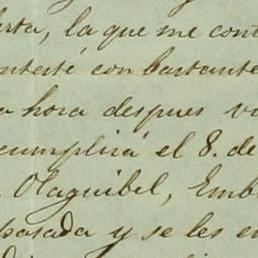 erta, la que me cont
ntesté con bastante
a hora despues v
cumplirá el 8. de
Olaguibel, Emb
pasada y se les e